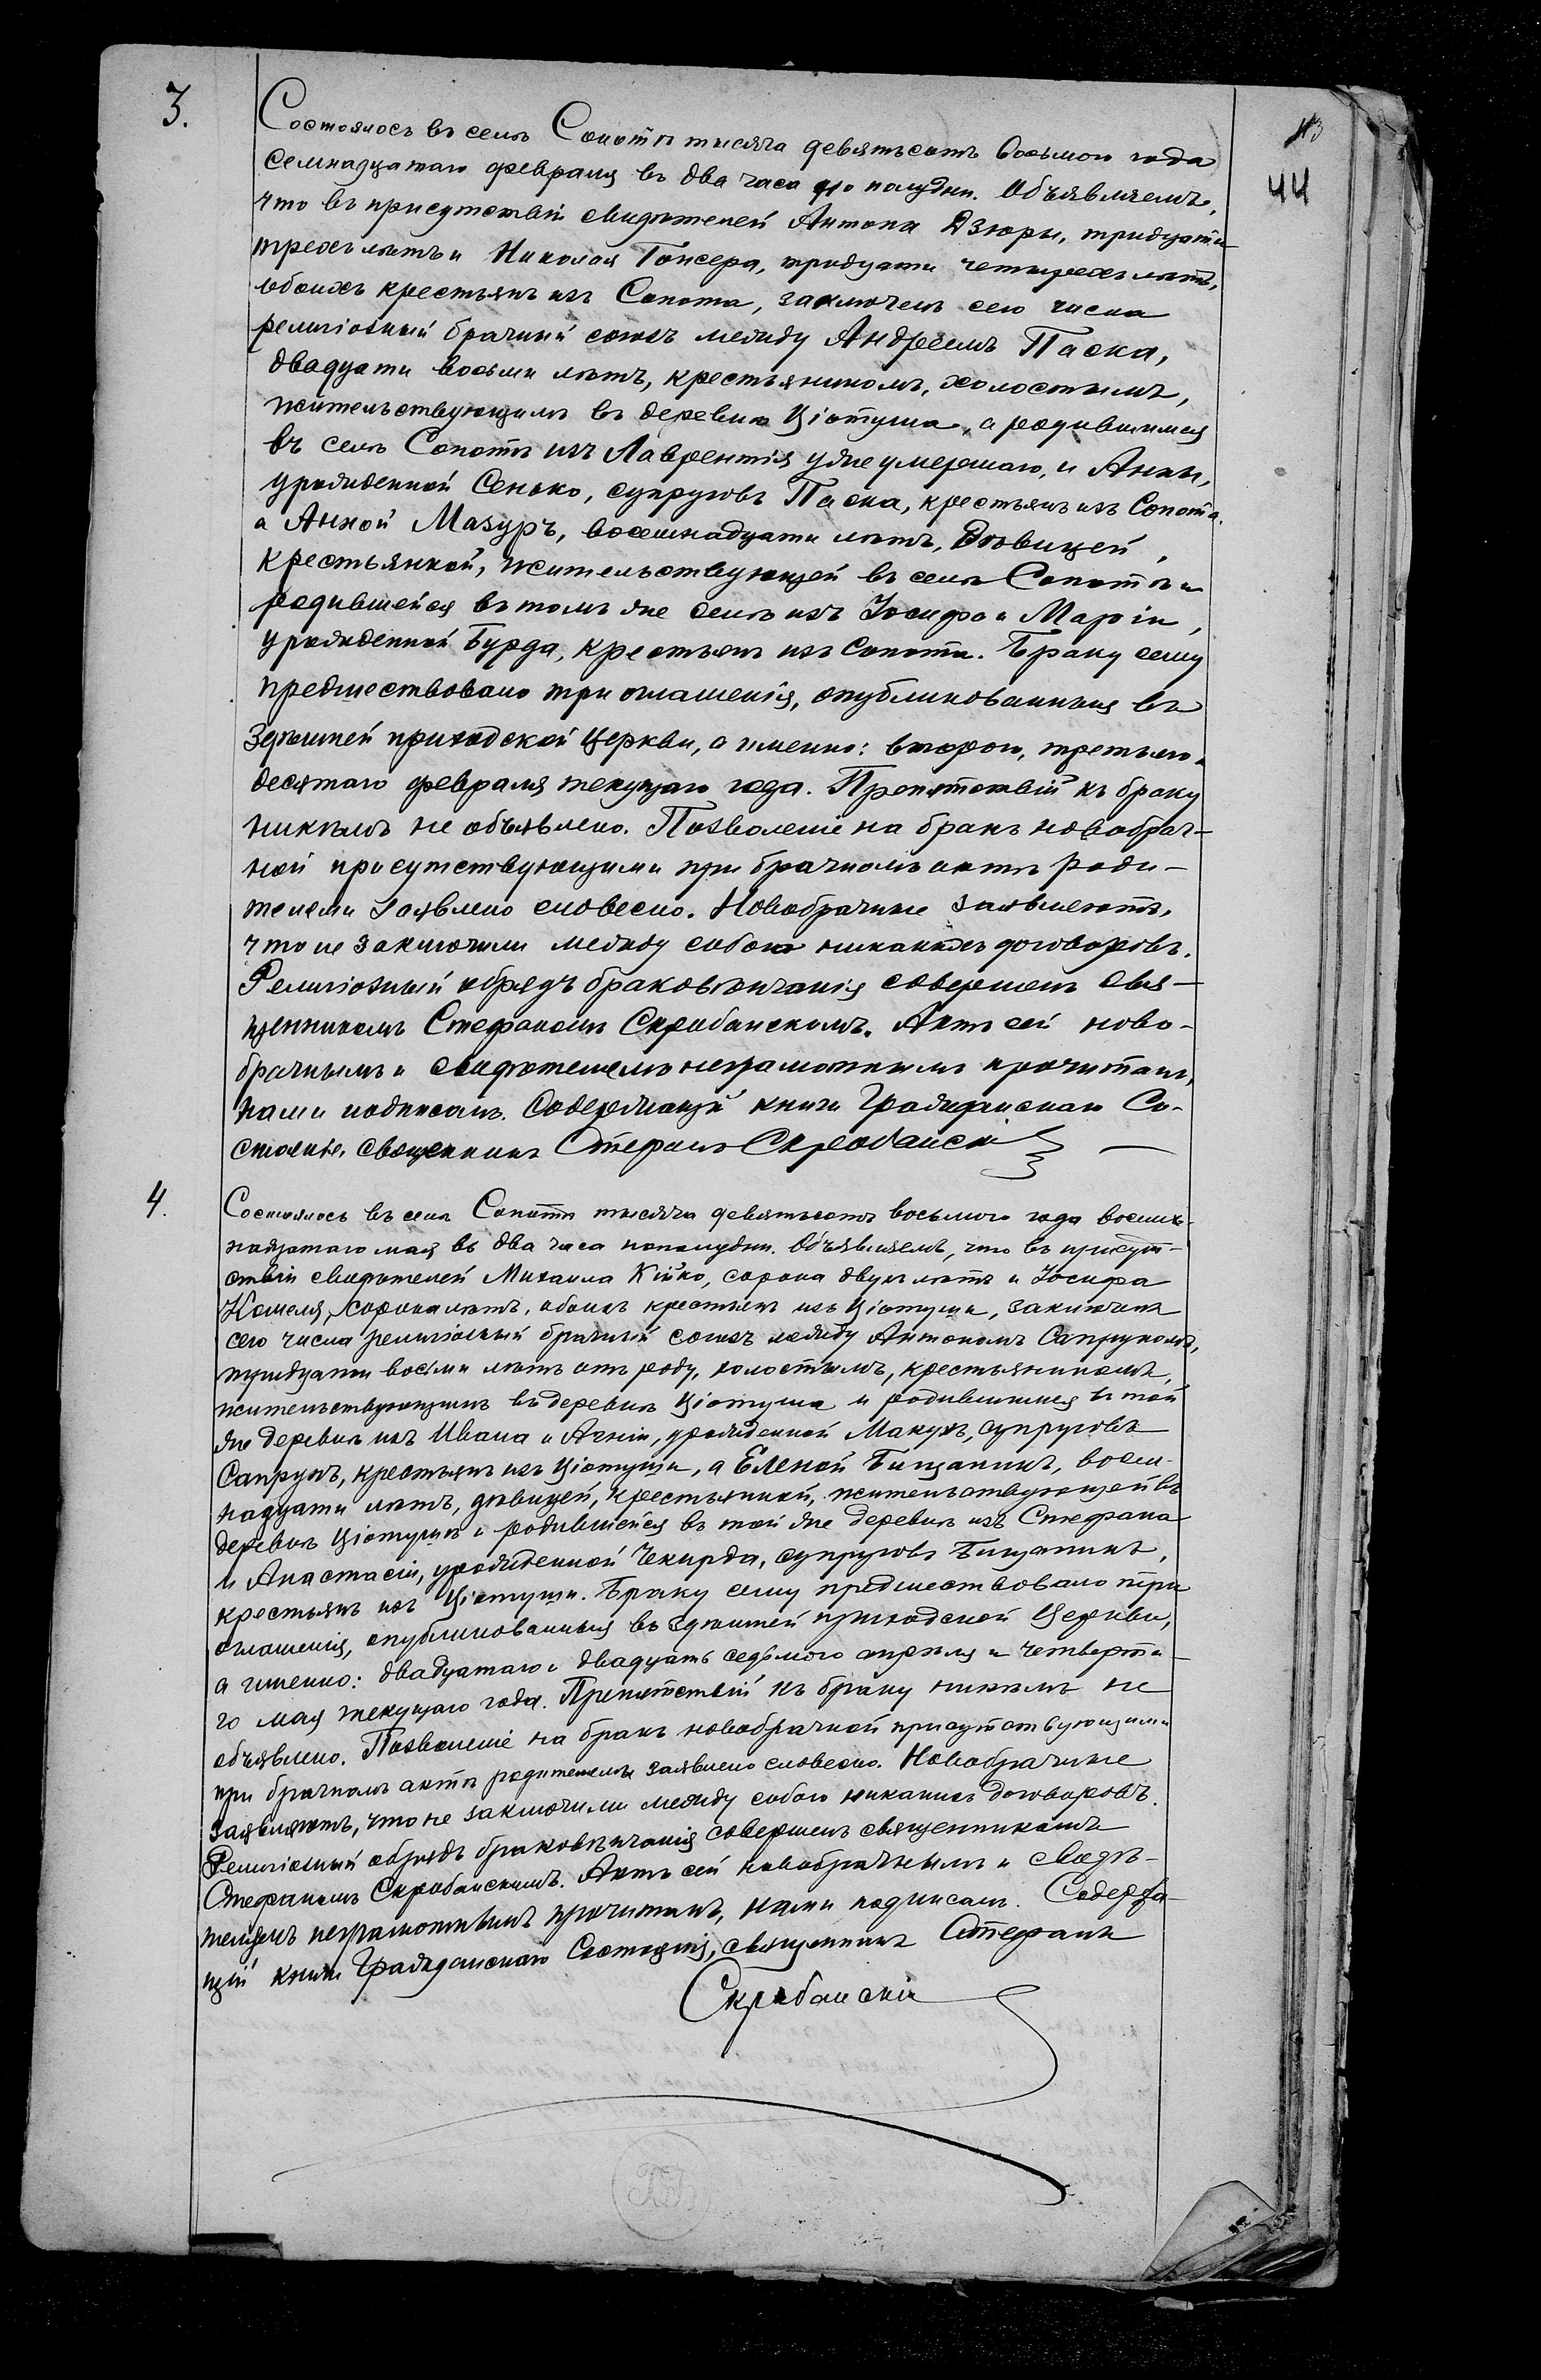 43
44
3.
Состоялось въ селѣ Сопотѣ тысяча девятьсотъ восьмого года
семнадцатаго февраля въ два часа по полудни. Объявляемъ,
что въ присутствіи свидѣтелей Антона Дзюры, тридцати
трехъ лѣтъ и Николая Гонсера, тридцати четырехъ лѣтъ,
обоихъ крестьянъ изъ Сопота, заключенъ сего числа
религіозный брачный союзъ между Андреемъ Паска,
двадцати восьми лѣтъ, крестьяниномъ, холостымъ,
жительствующимъ въ деревнѣ Ціотуша, а родившимся
въ селѣ Сопотѣ изъ Лаврентія уже умершаго, и Анны,
урожденной Сенько, супруговъ Паска, крестьянъ изъ Сопота,
а Анной Мазуръ, восемнадцати лѣтъ, Дѣвицей,
крестьянкой, жительствующей въ селѣ Сопотѣ и
родившейся въ томъ же селѣ изъ Іосифа и Маріи,
урожденной Бурда, крестьянъ изъ Сопота. Браку сему
предшествовало три оглашенія, опубликованныя въ
здѣшней приходской Церкви, а именно: второго, третьяго и
десятаго февраля текущаго года. Препятствій къ браку
никѣмъ не объявлено. Позволеніе на бракъ новобрач-
ной присутствующими при брачномъ актѣ роди-
телями заявлено словесно. Новобрачные заявляютъ,
что не заключили между собою никакихъ договоровъ.
Религіозный обрядъ браковѣнчанія совершенъ свя-
щенникомъ Стефаномъ Скрабанскимъ. Актъ сей ново-
брачнымъ и свидѣтелямъ неграмотнымъ прочитанъ,
нами подписанъ. Содержащій книги Гражданскаго Со-
стоянія, священникъ Стефанъ Скрабанскій
4.
Состоялось въ селѣ Сопотѣ тысяча девятьсотъ восьмого года восем-
надцатаго мая въ два часа пополудни. Объявляемъ, что въ присут-
ствіи свидѣтелей Михаила Кійко, сорока двухъ лѣтъ и Іосифа
Комеля, сорока лѣтъ, обоихъ крестьянъ изъ Ціотуши, заключенъ
сего числа религіозный брачный союзъ между Антономъ Сапруномъ,
тридцати восьми лѣтъ отъ роду, холостымъ, крестьяниномъ,
жительствующимъ въ деревнѣ Ціотуша и родившимся въ той
же деревнѣ изъ Ивана и Агніи, урожденной Макухъ, супруговъ
Сапрунъ, крестьянъ изъ Ціотуши, а Еленой Бицанинъ, восем-
надцати лѣтъ, дѣвицей, крестьянкой, жительствующей въ
деревнѣ Ціотушѣ и родившейся въ той же деревнѣ изъ Стефана
и Анастасіи, урожденной Чекирда, супруговъ Бицанинъ,
крестьянъ изъ Ціотуши. Браку сему предшествовало три
оглашенія, опубликованныя въ здѣшней приходской Церкви,
а именно: двадцатаго и двадцать седьмого апрѣля и четверта-
го мая текущаго года. Препятствій къ браку никѣмъ не
объявлено. Позволеніе на бракъ новобрачной присутствующими
при брачномъ актѣ родителями заявлено словесно. Новобрачные
заявляютъ, что не заключили между собою никакихъ договоровъ.
Религіозный обрядъ браковѣнчанія совершенъ священникомъ
Стефаномъ Скрабанскимъ. Актъ сей новобрачнымъ и свидѣ-
телямъ неграмотнымъ прочитанъ, нами подписанъ. Содержа-
щій книги Гражданскаго Состоянія, священникъ Стефанъ
Скрабанскій